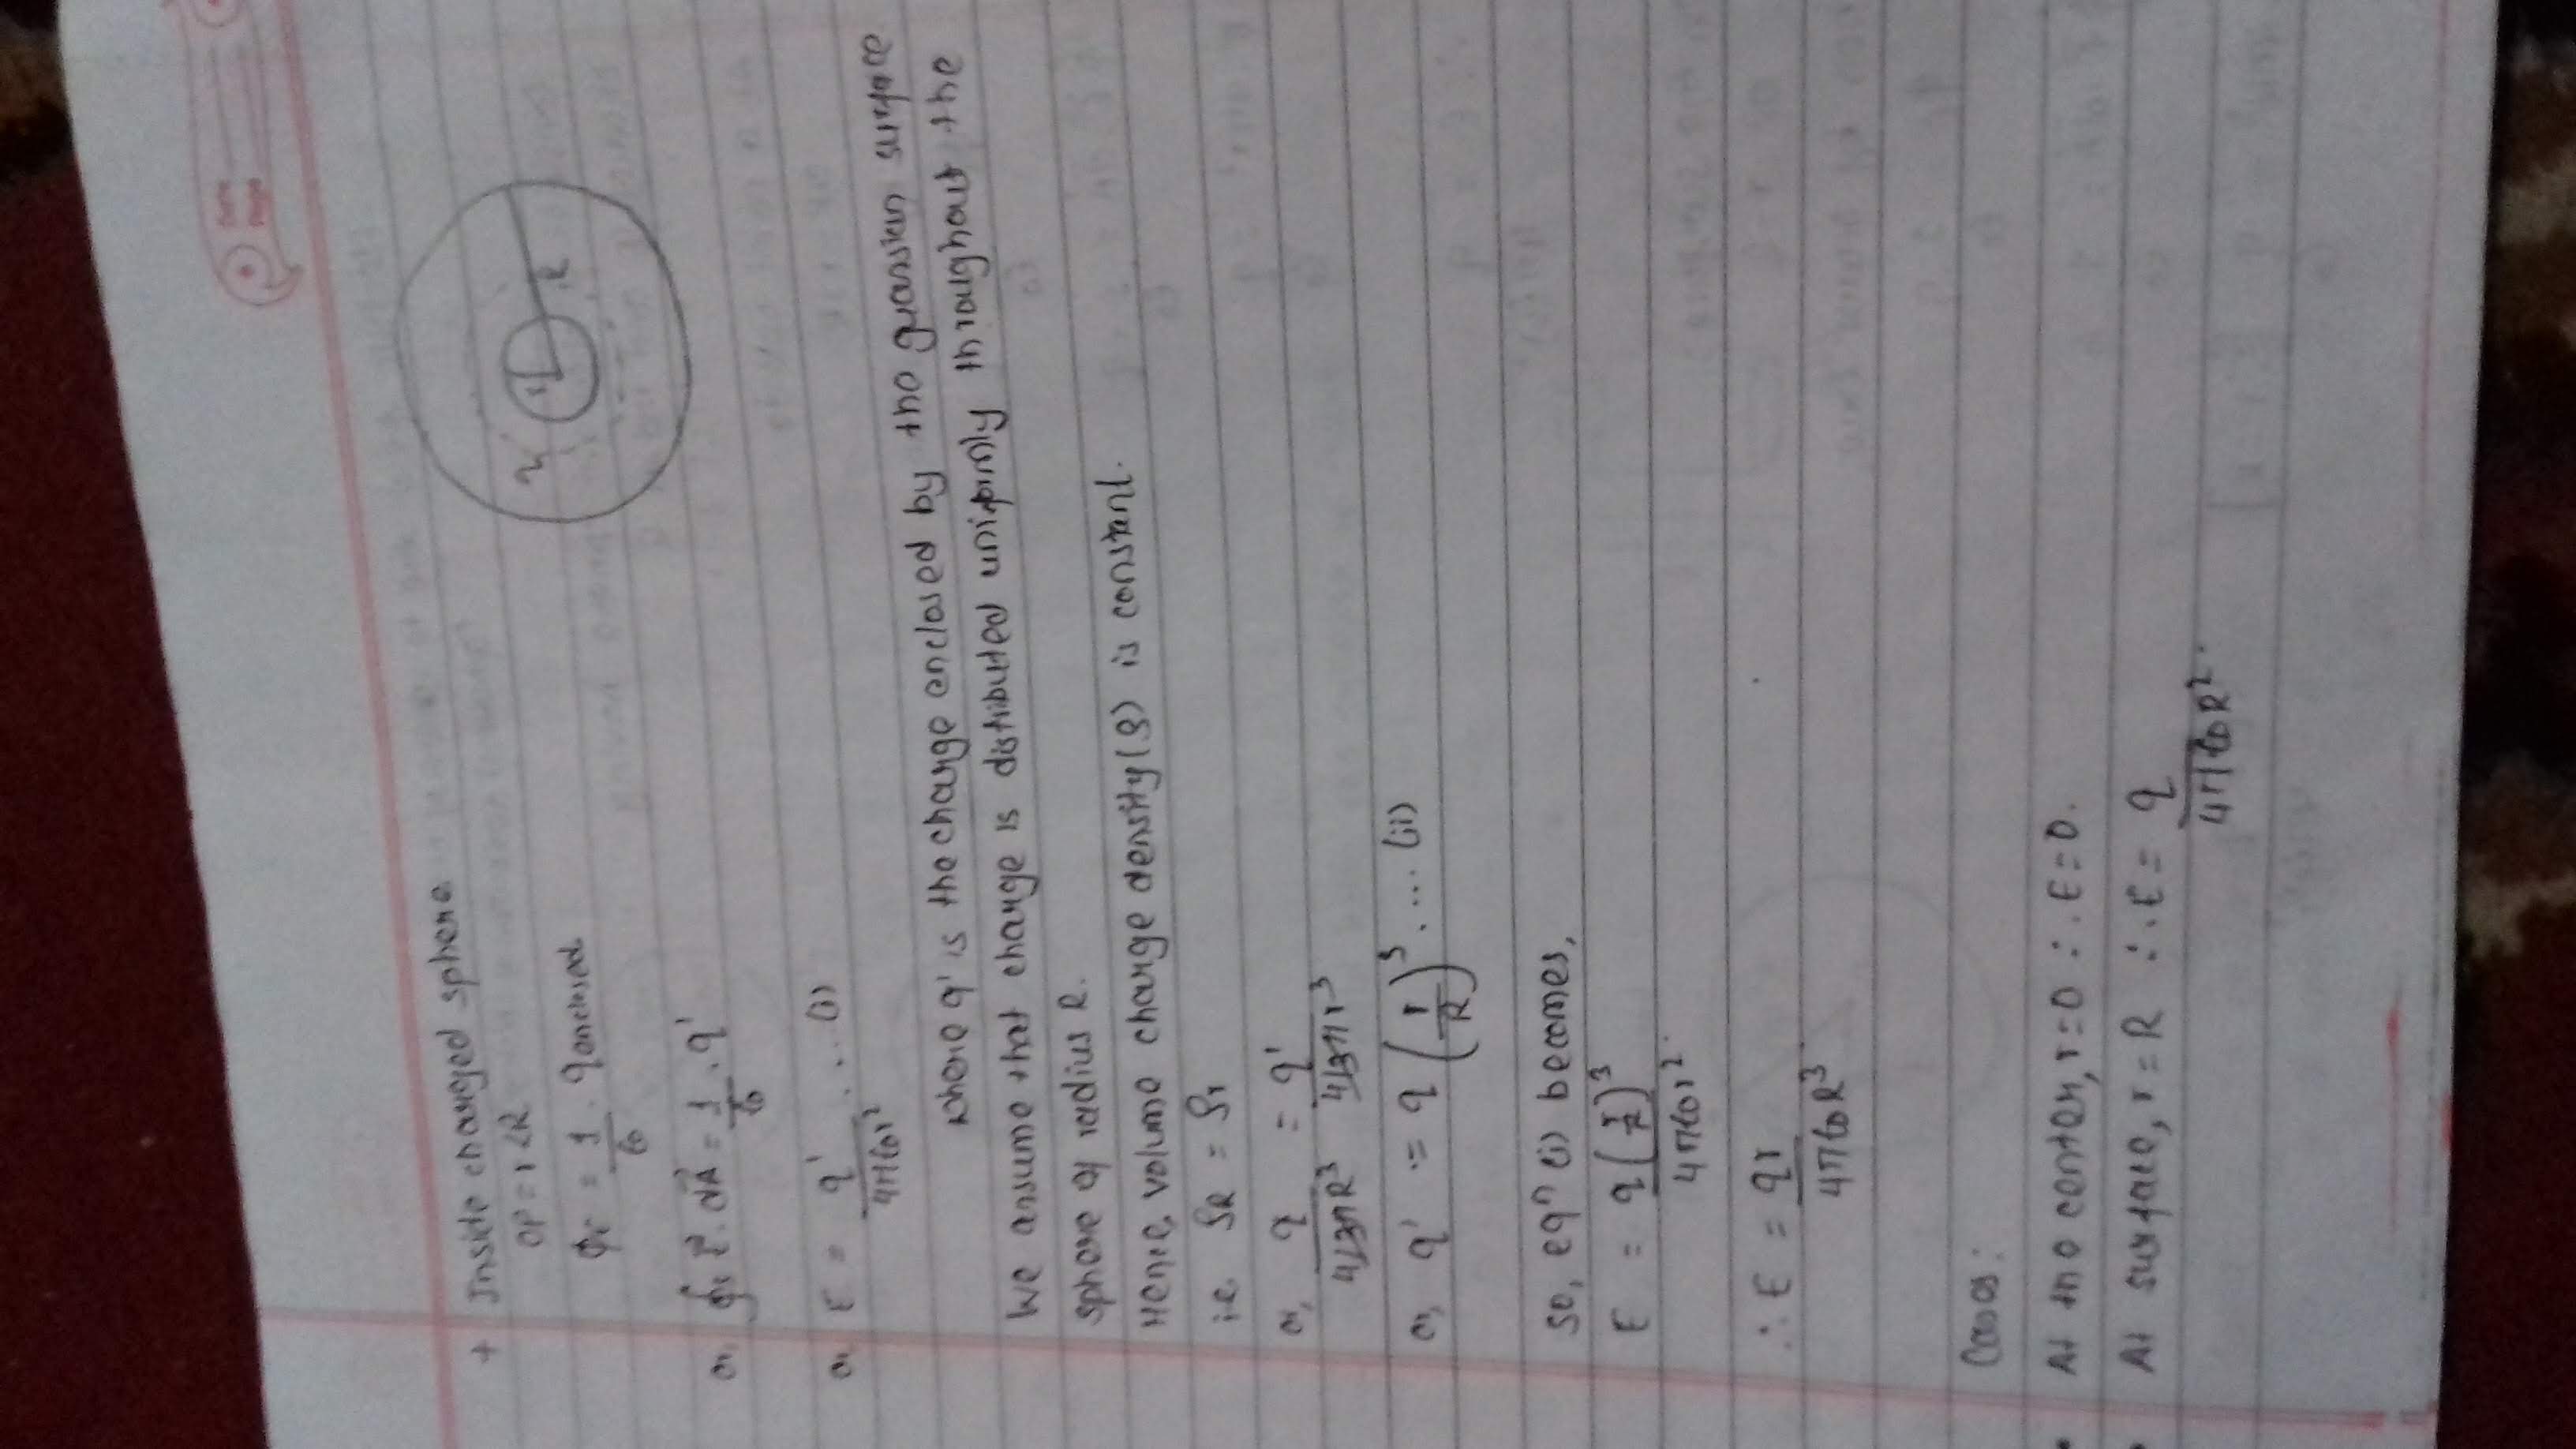 + Inside charged sphere
OP = r < R
φE = 1/ε0 . qenclosed
or, ∮ E⃗ . dA⃗ = 1/ε0 . q'
or, E = q'/4πε0r² ... (i)
where q' is the charge enclosed by the guassian surface
We assume that charge is distributed uniformly throughout the
sphere of radius R.
Hence, volume charge density (ρ) is constant.
i.e. ρR = ρr
or, q/4/3πR³ = q'/4/3πr³
or, q' = q (r/R)³ .... (ii)
so, eqⁿ (i) becomes,
E = q(r/R)³/4πε0r²
∴ E = qr/4πε0R³
Cases:
• At the center, r=0 ∴ E=0.
• At surface, r=R ∴ E = q/4πε0R².
q
r
R
Date
Page